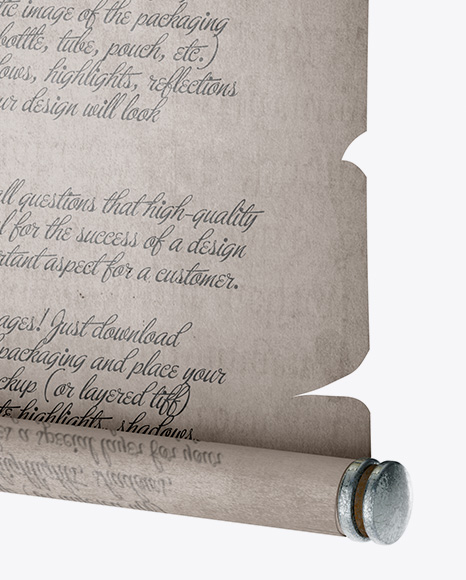 tic image of the packaging
bottle, tube, pouch, etc.)
lows, highlights, reflections
ur design will look
all questions that high-quality
l for the success of a design
rtant aspect for a customer.
ages! Just download
packaging and place your
ckup (or layered tiff)
te highlights, shadows,
s a special layer for your
highlights, shadows,